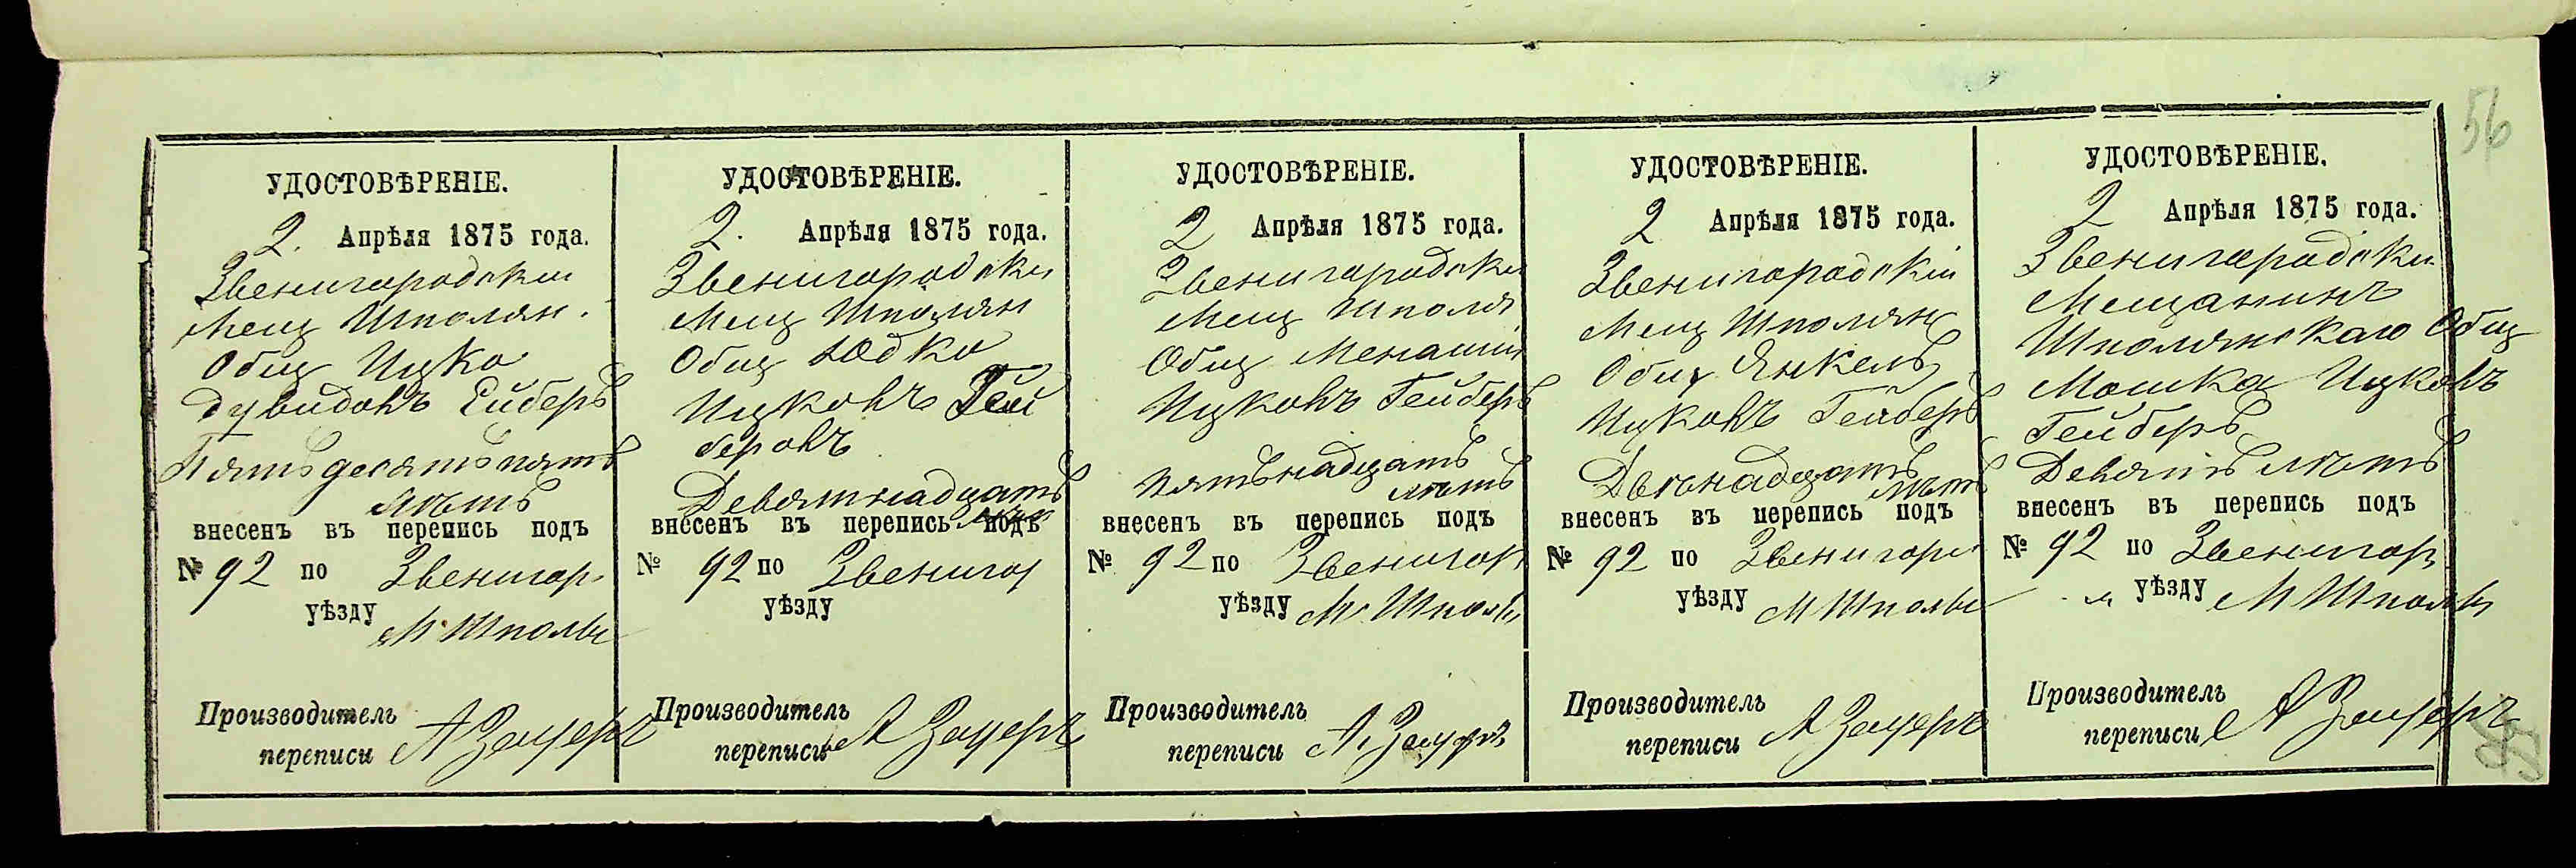 56
УДОСТОВѢРЕНІЕ.
2. Апрѣля 1875 года.
Звенигородскіи
Мещ Шполян.
Общ Ицко
Дувидовъ Ейберъ
Пятьдесятъпять
лѣтъ
внесенъ въ перепись подъ
№ 92 по Звенигор
уѣзду М. Шполы
Производитель
переписи
УДОСТОВѢРЕНІЕ.
2. Апрѣля 1875 года.
Звенигородски
Мещ Шполян
Общ Юдко
Ицковъ Гей
беровъ
Девятнадцать
лѣт
внесенъ въ перепись подъ
№ 92 по Звенигор
уѣзду
Производитель
переписи
УДОСТОВѢРЕНІЕ.
2 Апрѣля 1875 года.
Звенигородски
Мещ Шполя
Общ
Ицковъ Гейберъ
Пятьнадцать
лѣтъ
внесенъ въ перепись подъ
№ 92 по Звенигор
уѣзду М. Шполы
Производитель
переписи
УДОСТОВѢРЕНІЕ.
2 Апрѣля 1875 года.
Звенигородскіи
Мещ Шполян
Общ Янкель
Ицковъ Гейберъ
лѣтъ
внесенъ въ перепись подъ
№ 92 по Звенигор
уѣзду М Шполы
Производитель
переписи
УДОСТОВѢРЕНІЕ.
2 Апрѣля 1875 года.
Звенигородски
Мещанинъ
Шполянскаго Общ
Мошка Ицковъ
Гейберъ
Девять лѣтъ
внесенъ въ перепись подъ
№ 92 по Звенигор
уѣзду М Шполы
Производитель
переписи